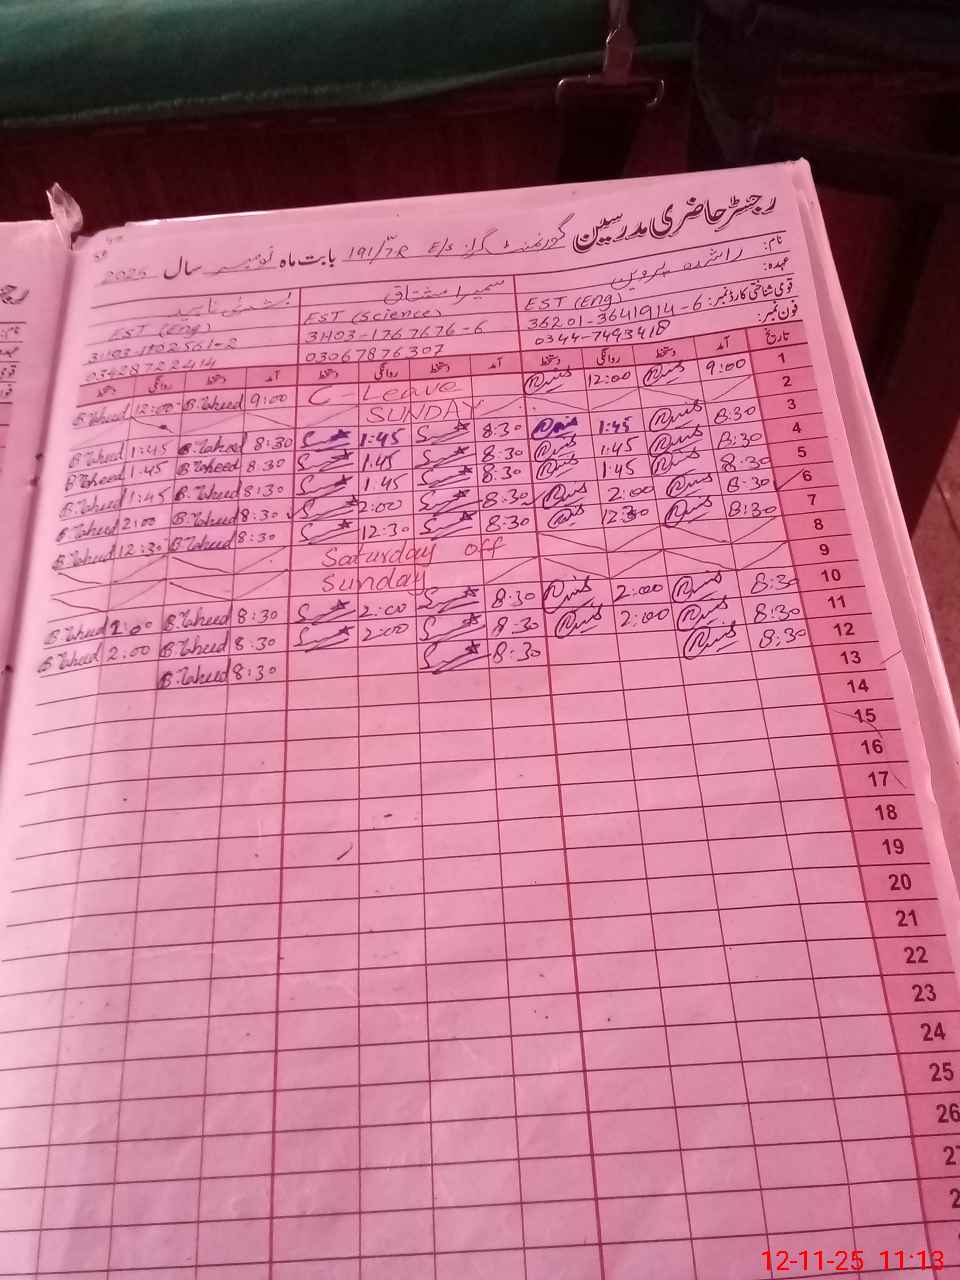 رجسٹر حاضری مدرسین گورنمنٹ گرلز E/S 191/7R بابت ماہ نومبر سال 2025
نام: راشدہ پروین سمیرا مشتاق بشریٰ ناہید
عہدہ: EST (Eng) EST (Science) EST (Eng)
قومی شناختی کارڈ نمبر: 36201-3641914-6 31103-1767676-6 31103-1102561-2
فون نمبر: 0344-7493418 03067876307 03428722414
تاریخ آمد دستخط روانگی دستخط آمد دستخط روانگی دستخط آمد دستخط روانگی دستخط
1 9:00 12:00 C-Leave 9:00 B.Naheed 12:00 B.Naheed
2 SUNDAY
3 8:30 1:45 8:30 1:45 8:30 B.Naheed 1:45 B.Naheed
4 8:30 1:45 8:30 1:45 8:30 B.Naheed 1:45 B.Naheed
5 8:30 1:45 8:30 1:45 8:30 B.Naheed 1:45 B.Naheed
6 8:30 2:00 8:30 2:00 8:30 B.Naheed 2:00 B.Naheed
7 8:30 12:30 8:30 12:30 8:30 B.Naheed 12:30 B.Naheed
8 Saturday off
9 Sunday
10 8:30 2:00 8:30 2:00 8:30 B.Naheed 2:00 B.Naheed
11 8:30 2:00 8:30 2:00 8:30 B.Naheed 2:00 B.Naheed
12 8:30 8:30 8:30 B.Naheed
13
14
15
16
17
18
19
20
21
22
23
24
25
26
27
12-11-25 11:13